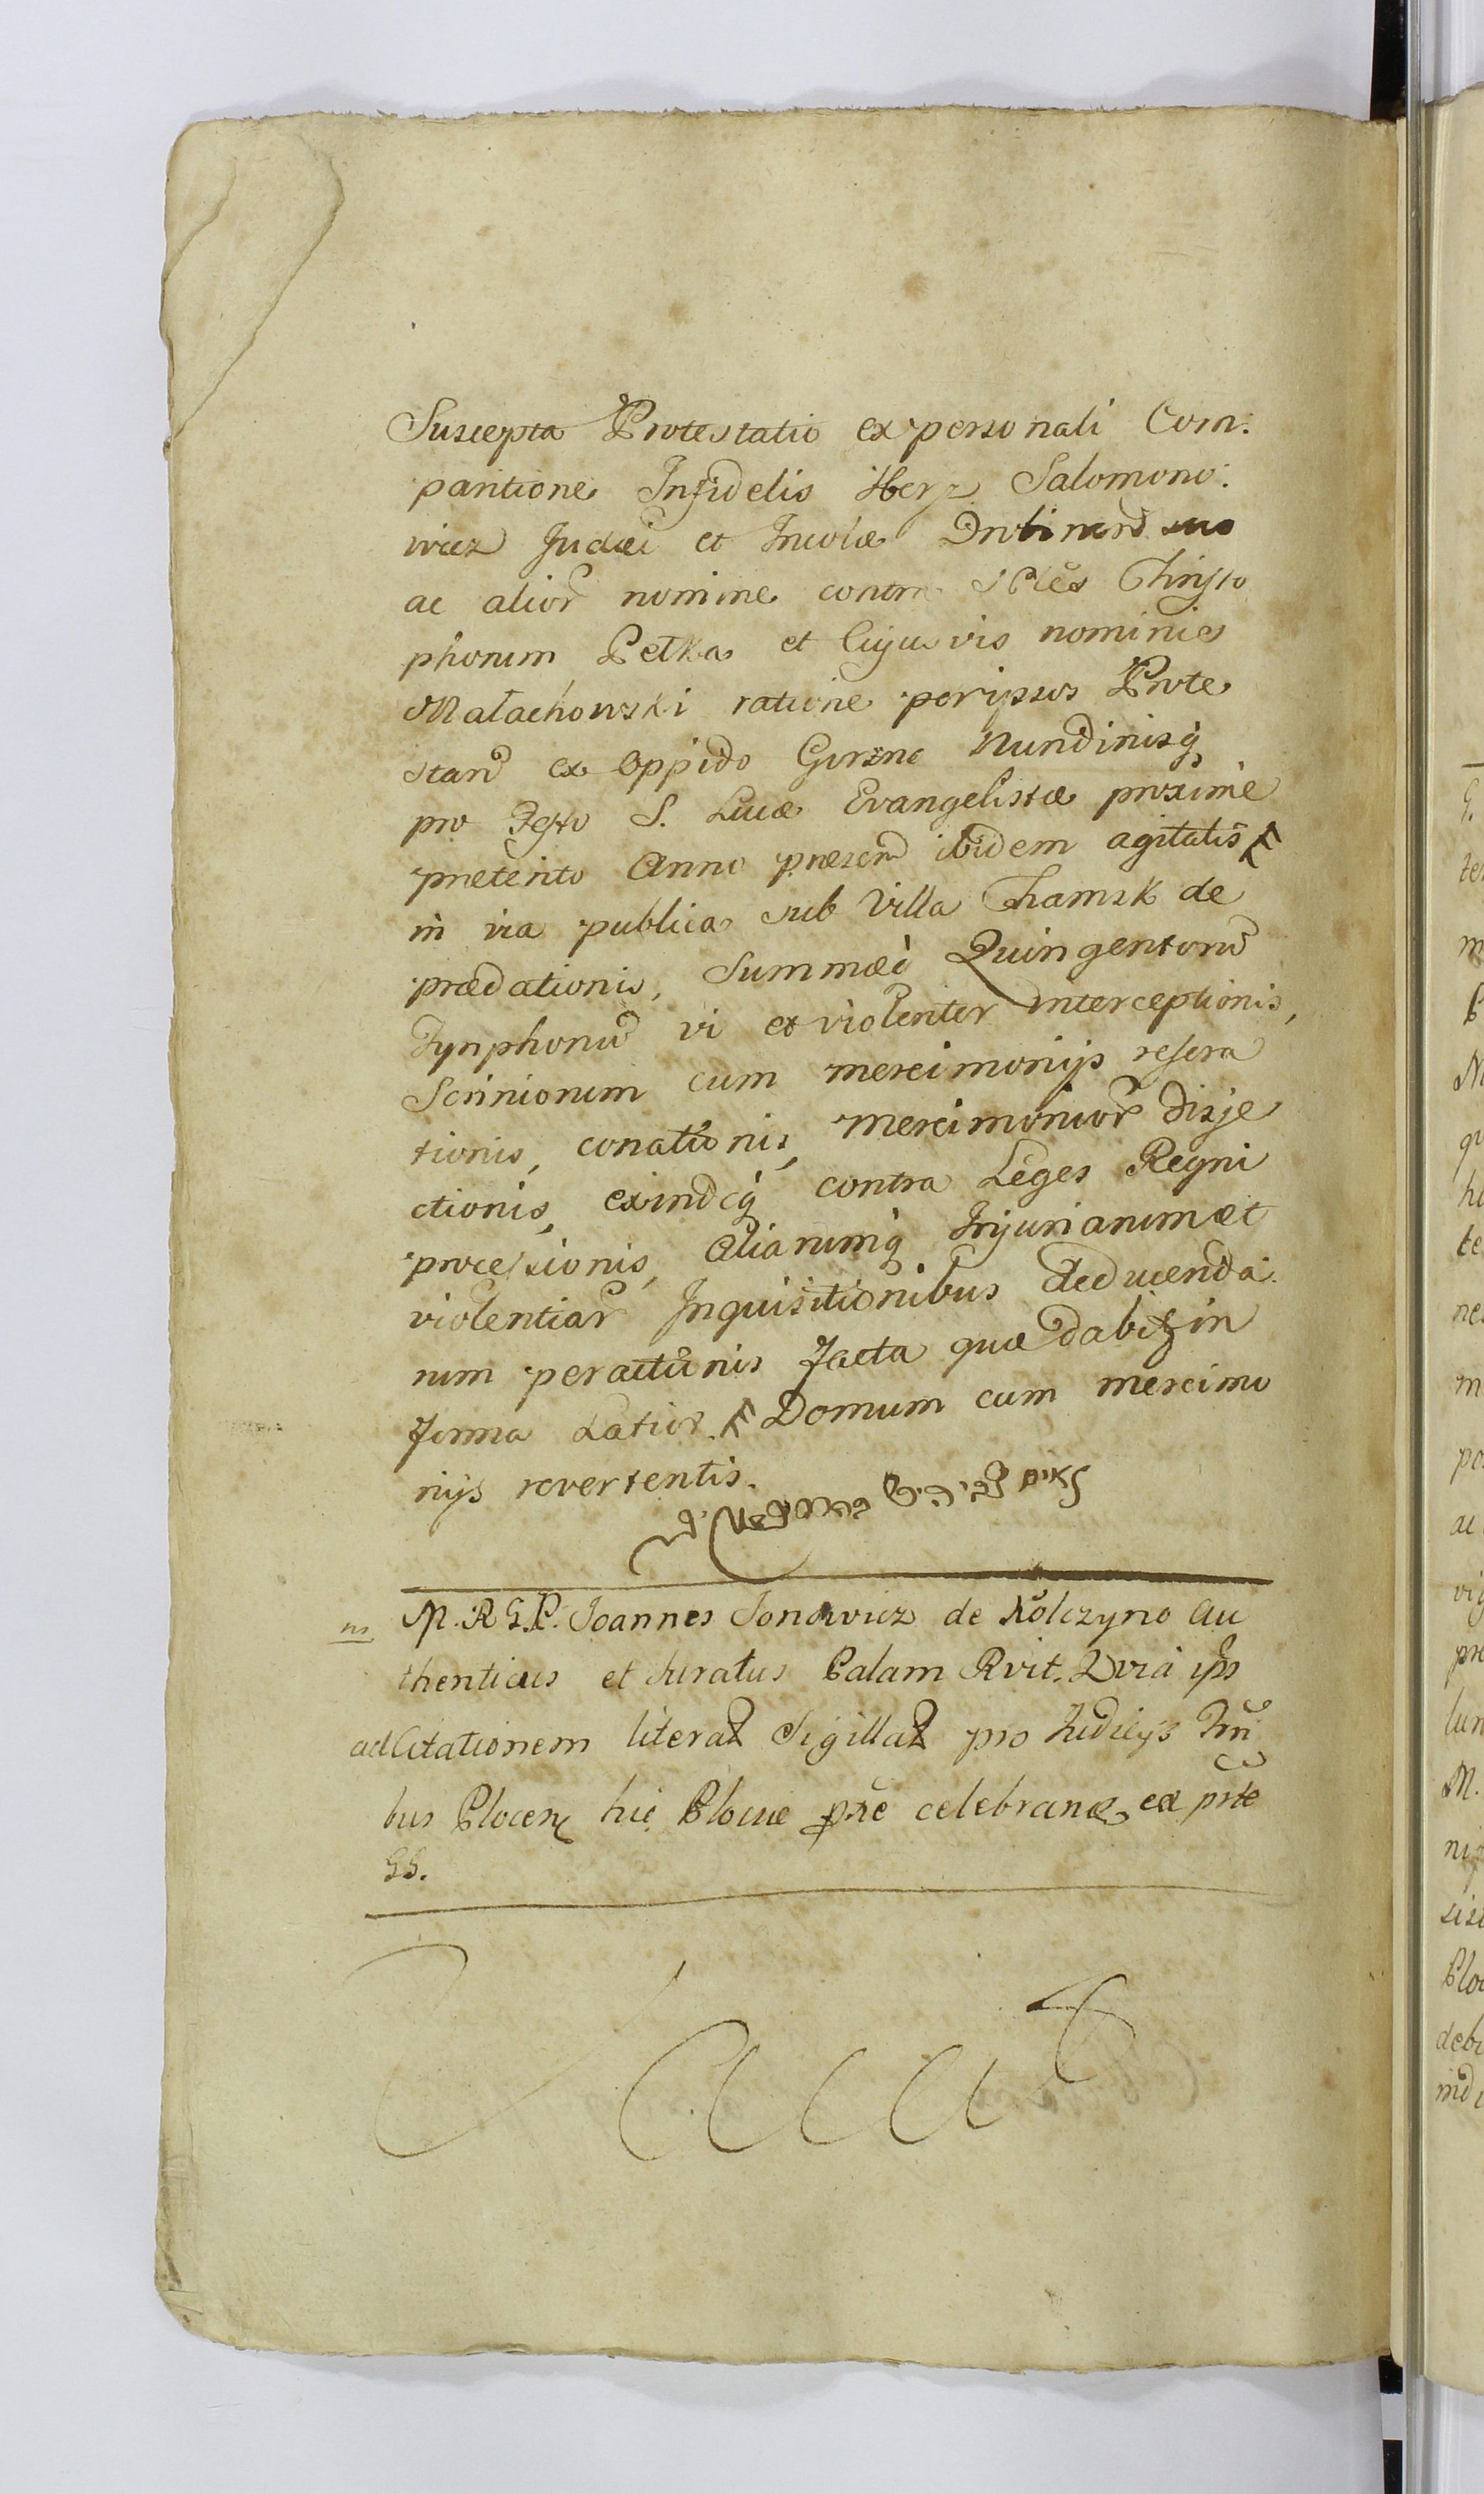 Suscepta Protestatio ex personali Com:
paritione Infidelis Herz Salomono:
wicz Judæi et Incolæ Drobinen suo
ac alior nomine contra Christo
phorum Petka et Cujusvis nominies
Małachowski ratione per ipsos Prote
stan ex Oppido Gurzno Nundinisq
pro Festo S. Lucæ Evangelistæ proxime
preterito Anno præsen ibidem agitatis
in via publica sub Villa Chamsk de
prædationis, Summæq Quingentoru
Tynphonu vi et violenter interceptionis,
Scriniorum cum mercimonijs resera
tionis, conationis, mercimonior disje
ctionis, exindeq contra Leges Regni
processionis, Aliarumq Injuriarum et
violentiar Inquisitionibus deducenda
rum peractionis facta quæ dabit in
forma Latior. Domum cum mercimo
nijs revertentis.
M. R G. P. Joannes Jonowicz de Kolczyno Au
thenticus et Juratus Palam Rvit.
ad Citationem litera Sigilla pro Judicijs
bus Plocen hic Plociæ celebran ex prte
SS.
Vacat